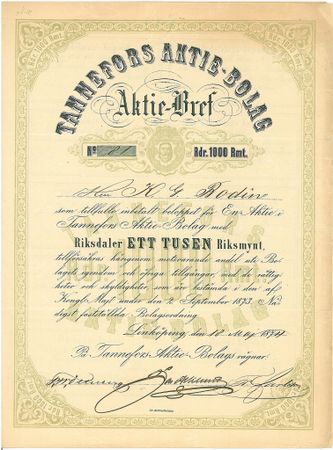 TANNEFORS AKTIE-BOLAG
Aktie-Bref
No 81
Rdr. 1000 Rmt.
Herr H. G. Bodin
som tillfullo inbetalt beloppet för En Aktie i
Tannefors Aktie Bolag med
Riksdaler ETT TUSEN Riksmynt,
tillförsäkras härigenom motsvarande andel uti Bo-
lagets egendom och öfriga tillgångar, med de rättig-
heter och skyldigheter, som äro bestämda i den af
Kongl. Maj:t under den 2 September 1873. Nå-
digst fastställda Bolagsordning
Linköping den 18 Maj 1874
På Tannefors Aktie-Bolags vägnar.